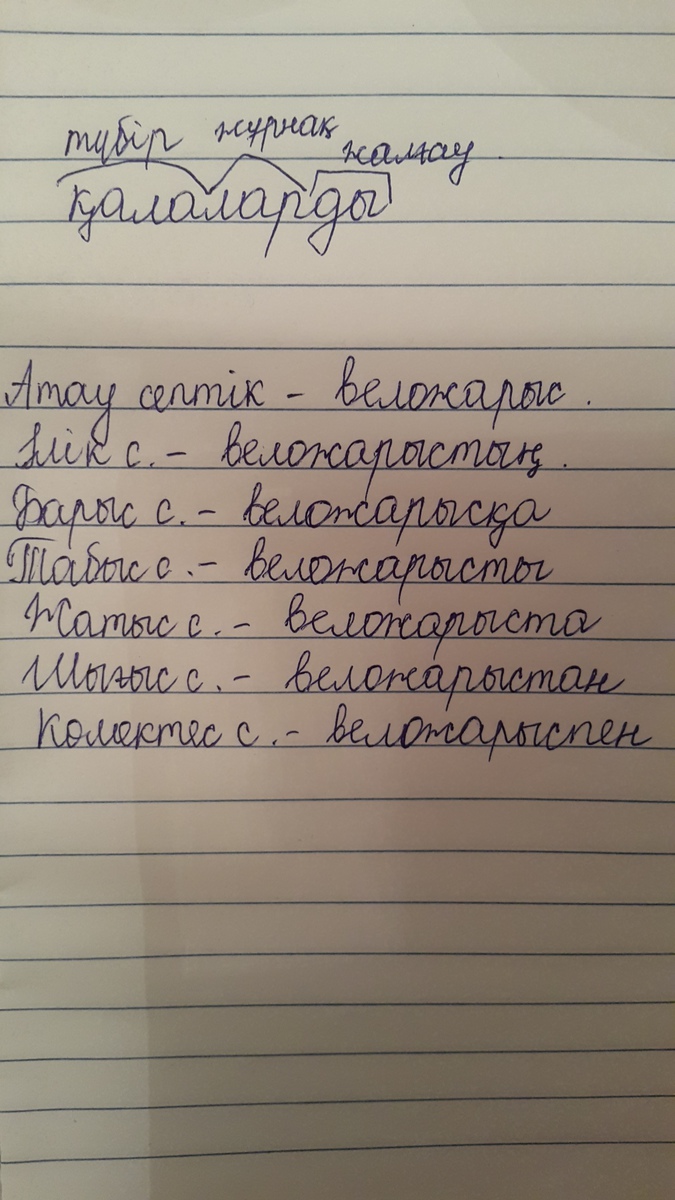 түбір жұрнақ жалғау.
қалаларды
Атау септік - веложарыс.
Ілік с. - веложарыстың.
Барыс с. - веложарысқа
Табыс с. - веложарысты
Жатыс с. - веложарыста
Шығыс с. - веложарыстан
Көмектес с. - веложарыспен